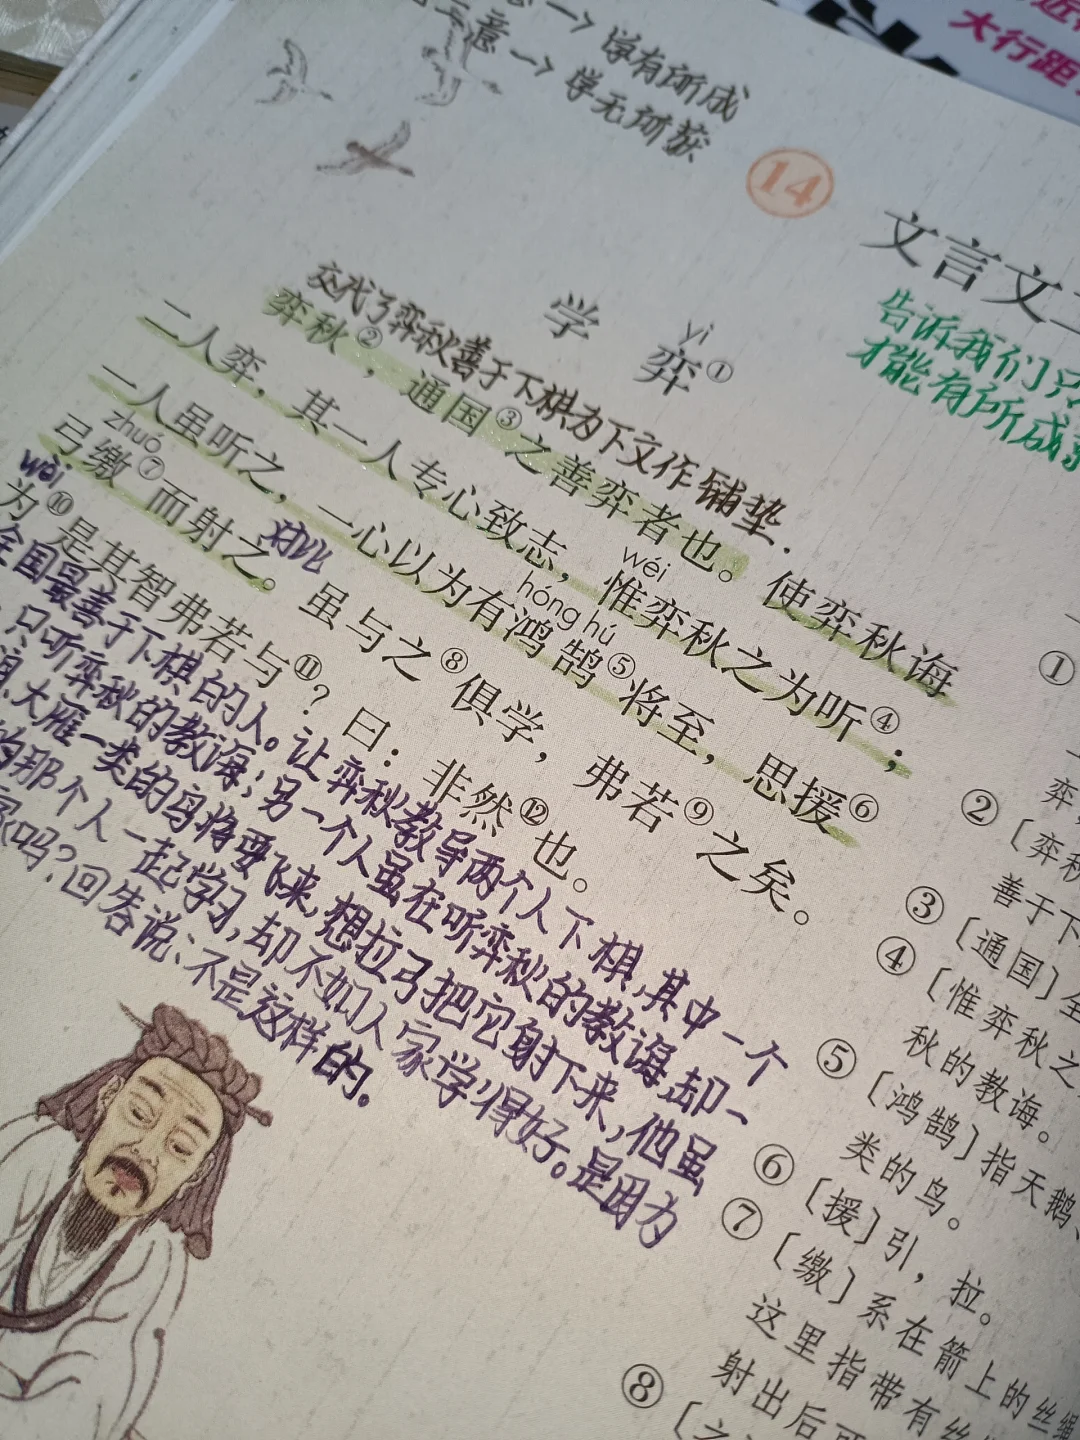 大行距
意一>学有所成
三意一>学无所获
14
文言文二
告诉我们只
才能有所成
yì
学弈①
交代了弈秋善于下棋为下文作铺垫.
弈秋②，通国③之善弈者也。使弈秋诲
二人弈，其一人专心致志，惟弈秋之为听④；
wéi
一人虽听之，一心以为有鸿鹄⑤将至，思援⑥
hóng hú
弓缴⑦而射之。虽与之⑧俱学，弗若⑨之矣。
zhuó
对比
为⑩是其智弗若与⑪？曰：非然⑫也。
wèi
全国最善于下棋的人。让弈秋教导两个人下棋,其中一个
只听弈秋的教诲;另一个人虽在听弈秋的教诲,却一
大雁一类的鸟将要飞来,想拉弓把它射下来,他虽
的那个人一起学习,却不如人家学得好。是因为
家吗?回答说:不是这样的。
①
弈
②〔弈秋
善于下
③〔通国〕全
④〔惟弈秋之
秋的教诲。
⑤〔鸿鹄〕指天鹅、
类的鸟。
⑥〔援〕引，拉。
⑦〔缴〕系在箭上的丝绳
这里指带有丝
射出后可
⑧〔之